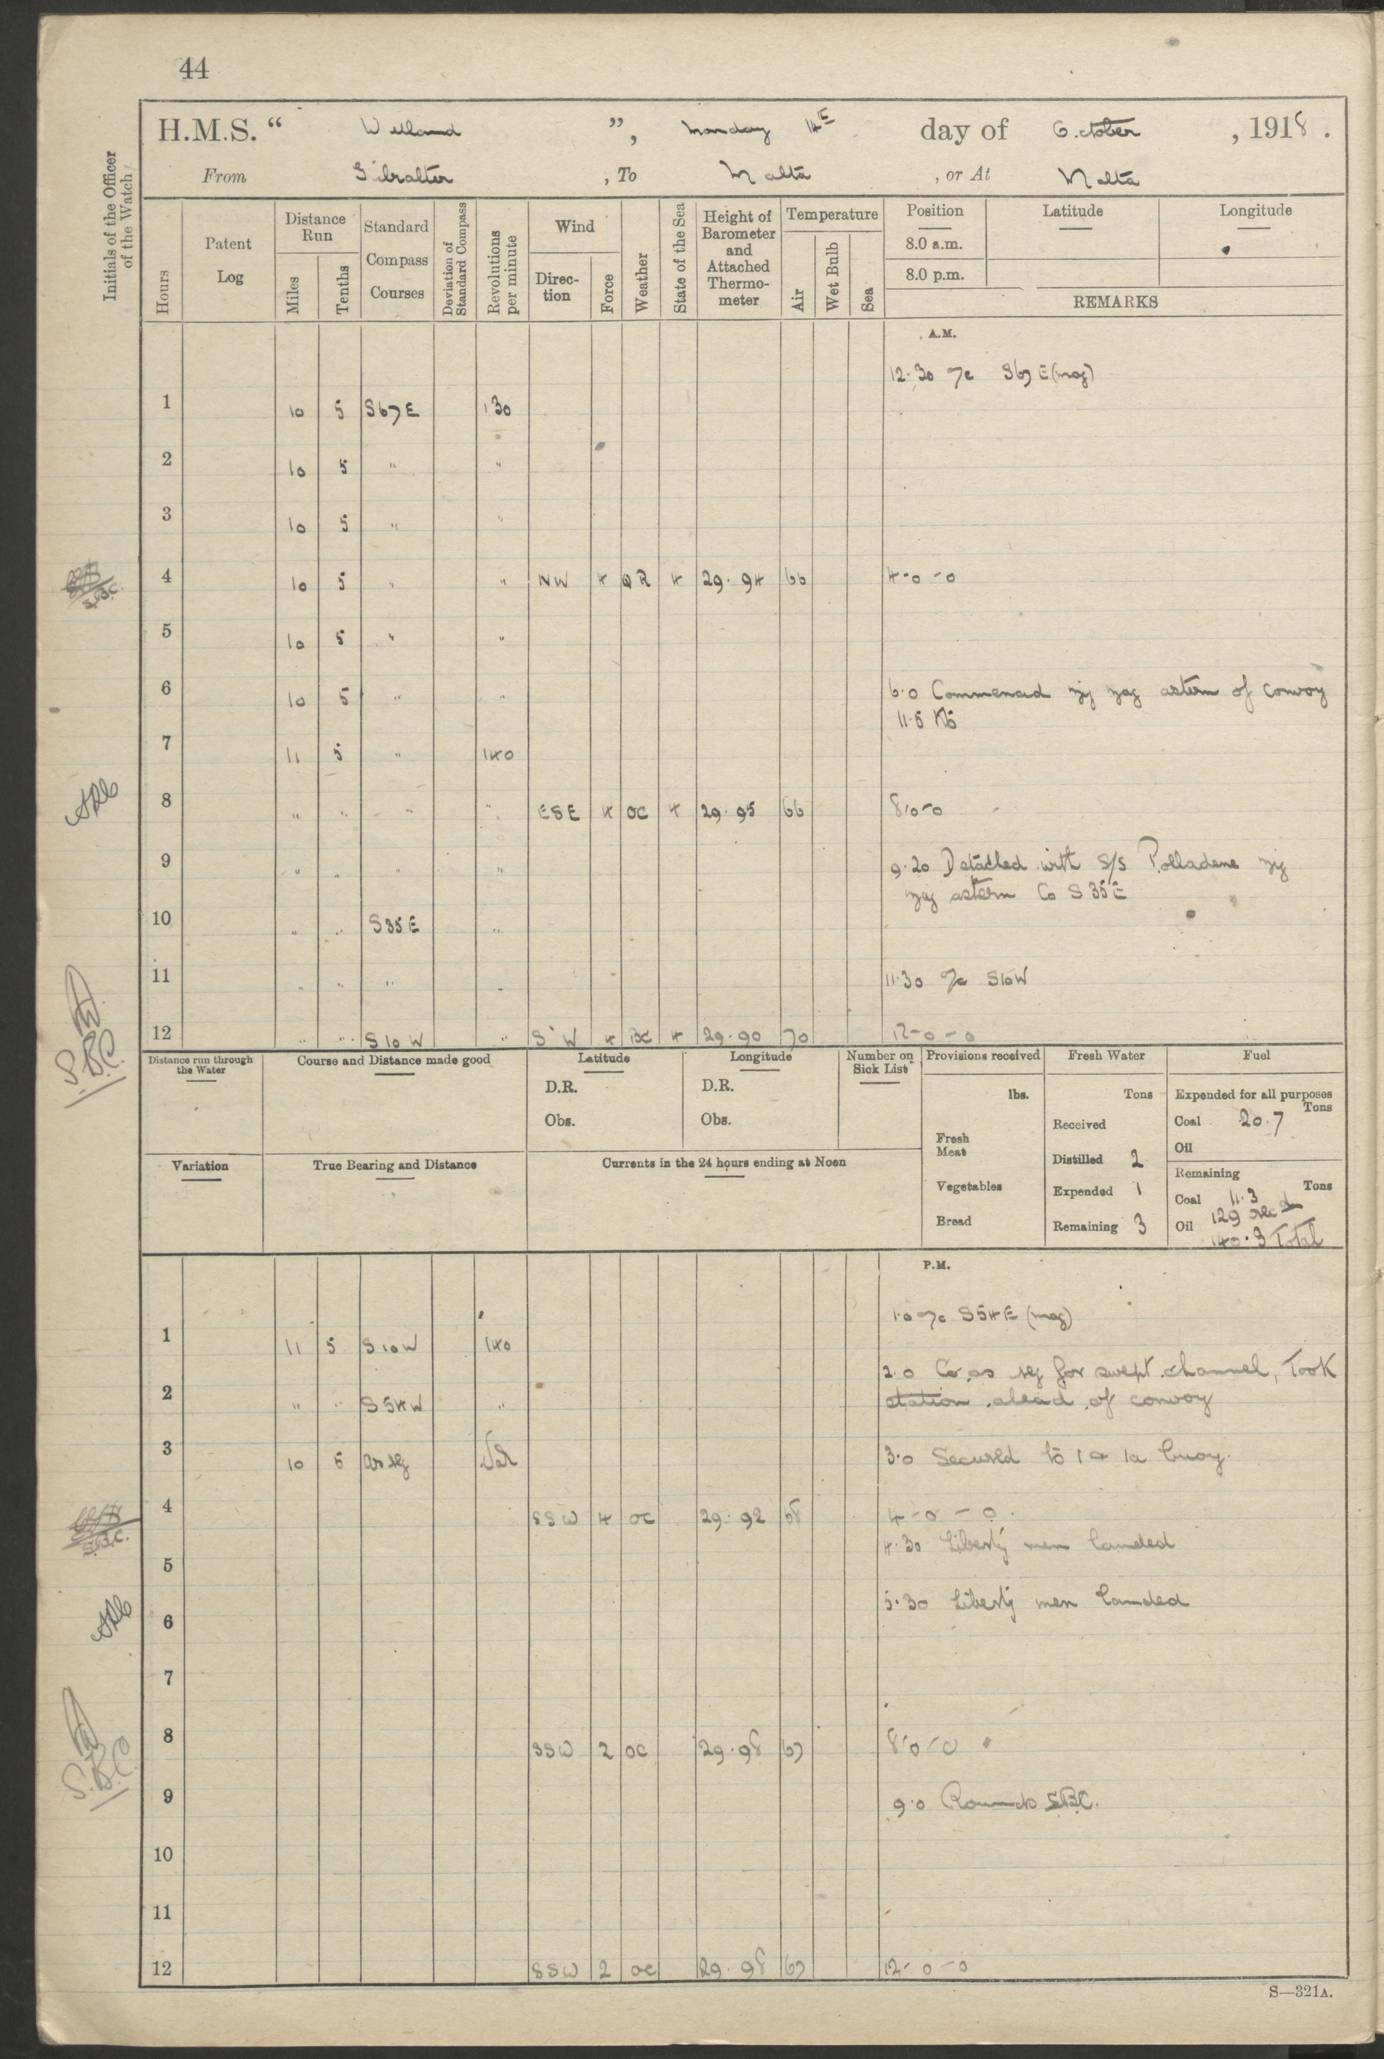 44
H.M.S. “ Welland ”, Monday 14th day of October, 1918.
From Gibralter, To Malta, or At Malta
Initials of the Officer of the Watch
Hours
Patent Log
Distance Run
Miles
Tenths
Standard Compass Courses
Deviation of Standard Compass
Revolutions per minute
Wind
Direction
Force
Weather
State of the Sea
Height of Barometer and Attached Thermometer
Temperature
Air
Wet Bulb
Sea
Position Latitude Longitude
8.0 a.m.
8.0 p.m.
REMARKS
A.M.
12.30 a/c S67E (mag)
1 10 5 S67E 130
2 10 5 " "
3 10 5 " "
4 10 5 " " NW 4 QR 4 29.94 66 4-0-0
5 10 5 " "
6 10 5 " " 6.0 Commenced zig zag astern of convoy
11.5 Kts
7 11 5 " 140
8 " " " " ESE 4 OC 4 29.95 66 8-0-0
9 " " " " 9.20 Detached with S/S Polladene zig
zag astern Co S35E
10 " " S35E "
11 " " " " 11.30 a/c S10W
12 " " S10W " S'W 4 BC 4 29.90 70 12-0-0
Distance run through the Water
Course and Distance made good
Latitude
D.R.
Obs.
Longitude
D.R.
Obs.
Number on Sick List
Provisions received
lbs.
Fresh Meat
Vegetables
Bread
Fresh Water
Tons
Received
Distilled 2
Expended 1
Remaining 3
Fuel
Expended for all purposes
Tons
Coal 20.7
Oil
Remaining
Tons
Coal 11.3
129 rec'd
Oil
140.3 Total
Variation
True Bearing and Distance
Currents in the 24 hours ending at Noon
P.M.
1.0 a/c S54E (mag)
1 11 5 S10W 140
2.0 Co as req for swept channel, Took
2 " " S54W " station ahead of convoy
3 10 5 as req Var 3.0 Secured to 1 & 1a buoy.
4 SSW 4 OC 29.92 68 4-0-0.
4.30 Liberty men landed
5
5.30 Liberty men landed
6
7
8 SSW 2 OC 29.98 67 8-0-0
9 9.0 Rounds SBC.
10
11
12 SSW 2 OC 29.98 67 12-0-0
S.B.C.
S.B.C.
S.B.C.
S.B.C.
S—321A.